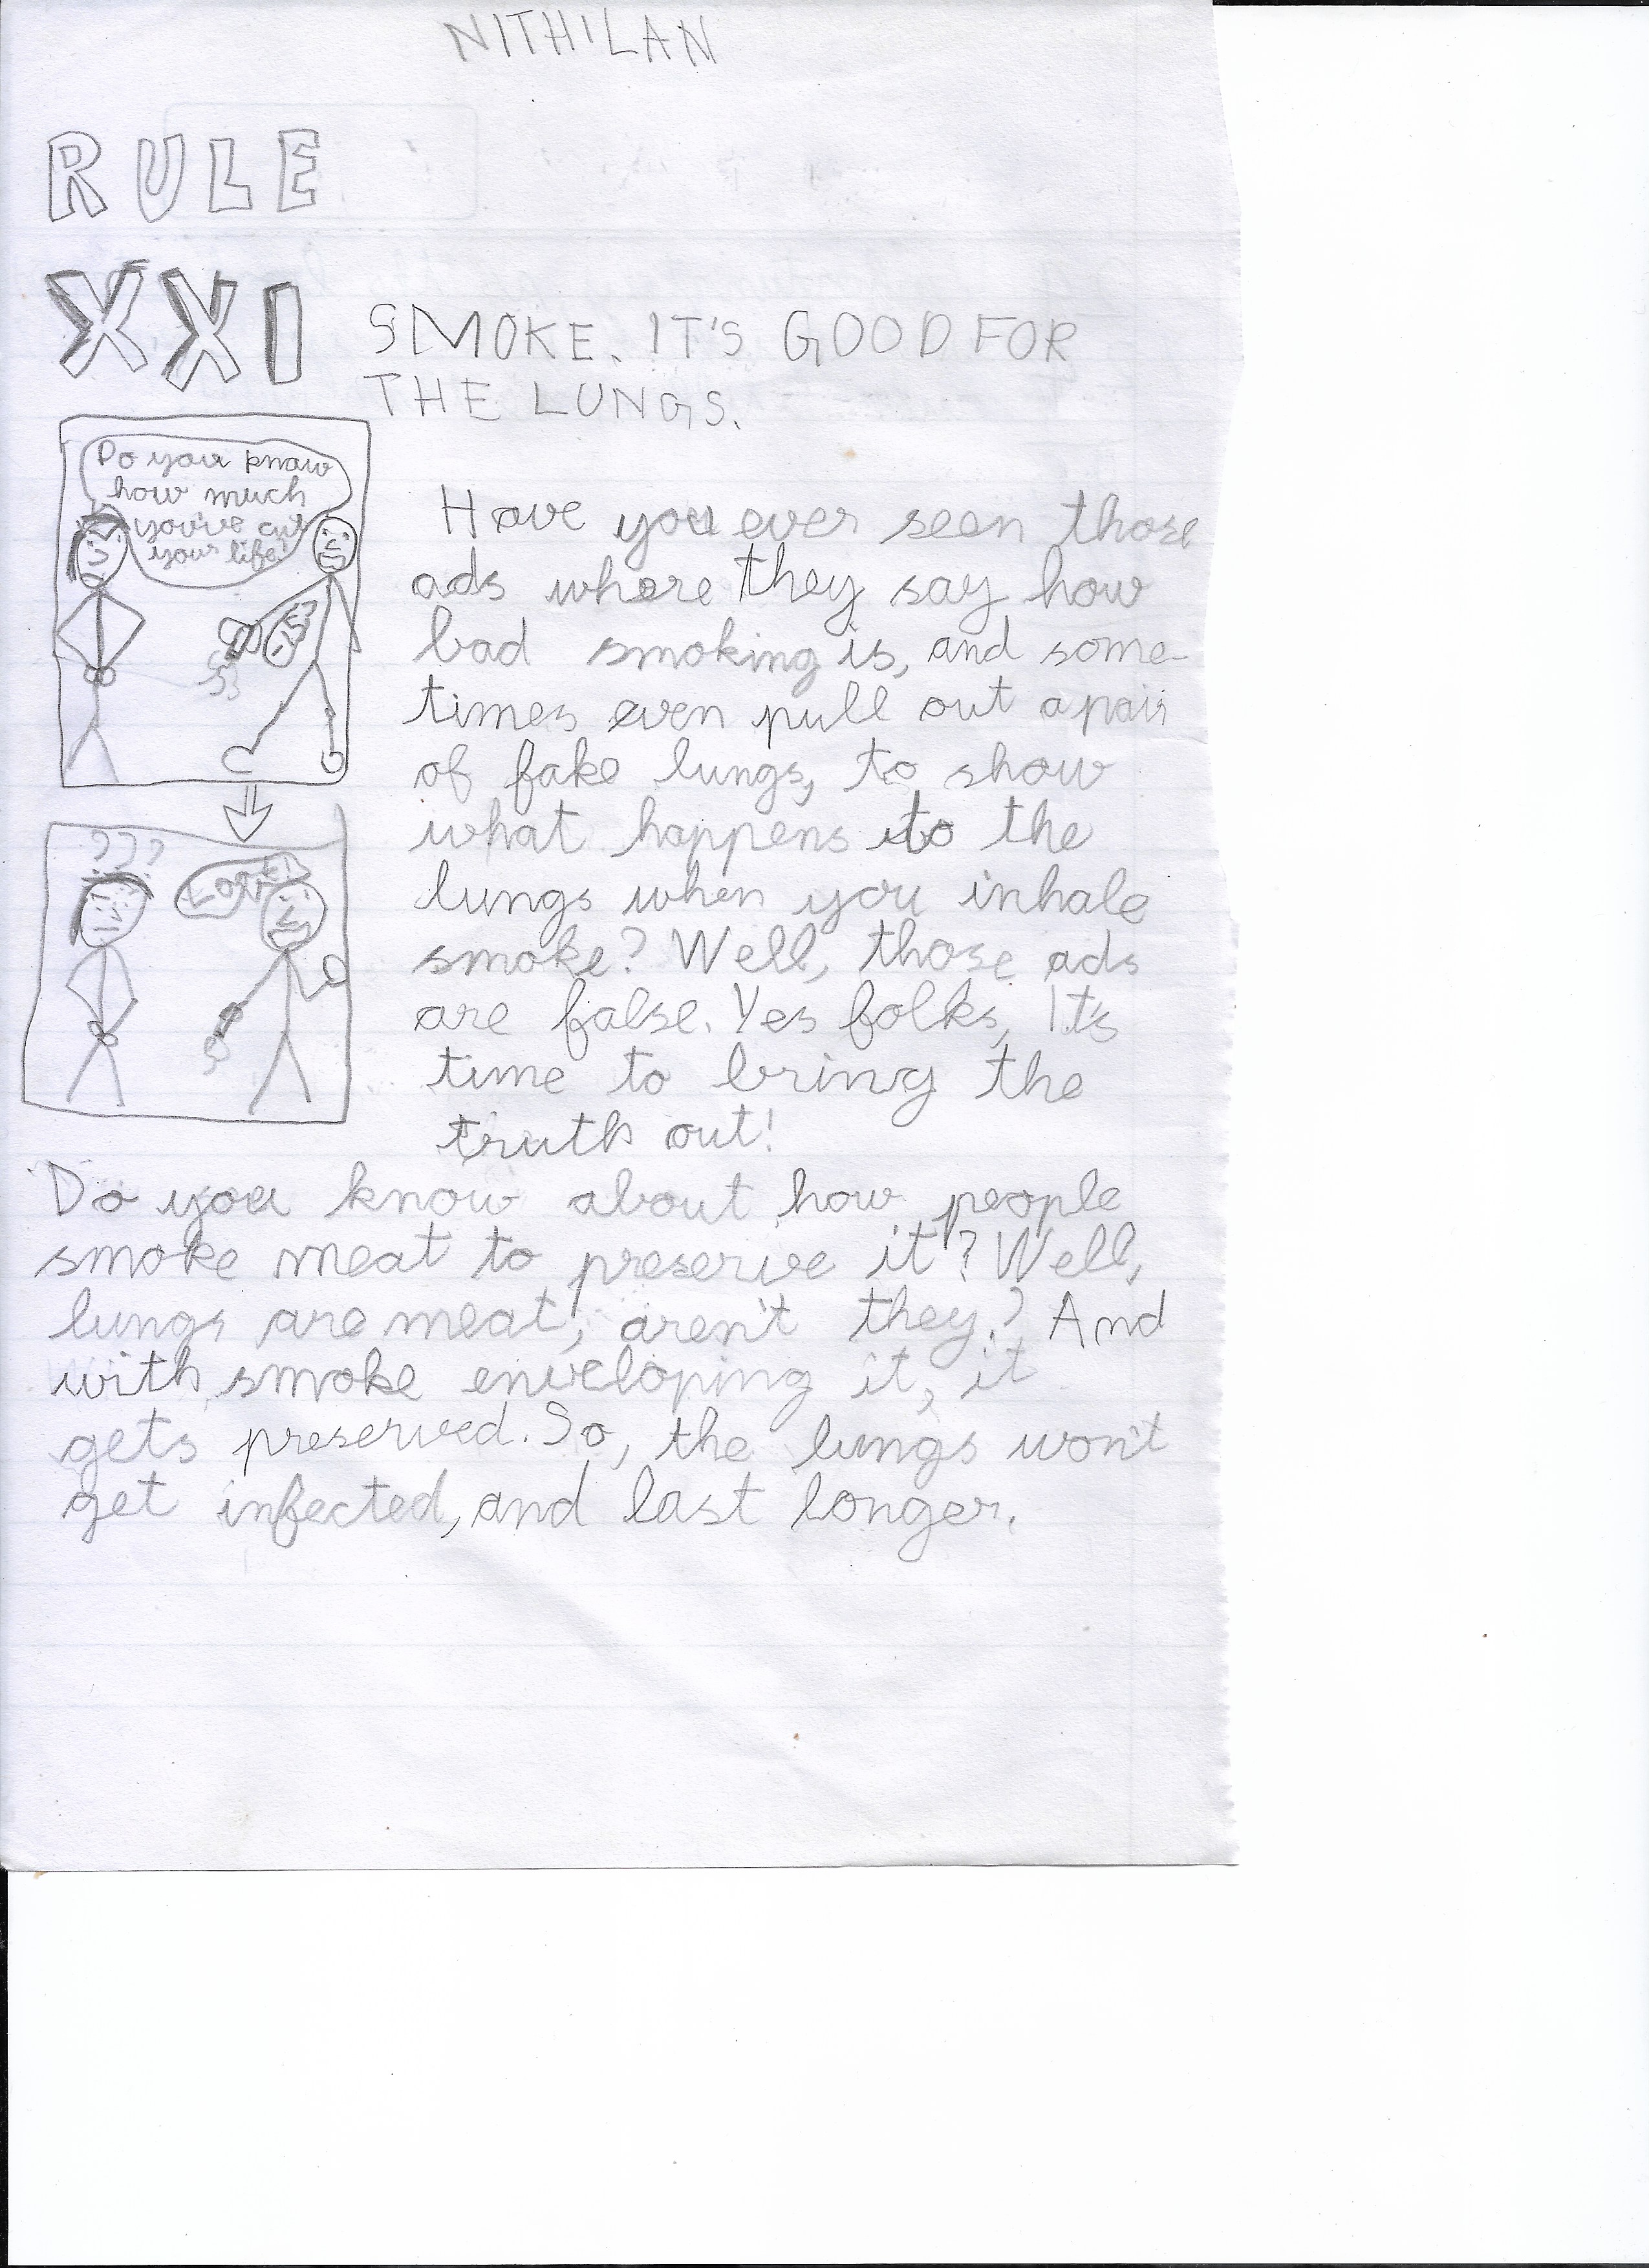 NITHILAN
RULE
XXI
SMOKE. IT'S GOOD FOR
THE LUNGS.
Do you know
how much
you've cut
your life!
???
Look!
Have you ever seen those
ads where they say how
bad smoking is, and some-
times even pull out a pair
of fake lungs, to show
what happens to the
lungs when you inhale
smoke? Well, those ads
are false. Yes folks, It's
time to bring the
truth out!
Do you know about how people
smoke meat to preserve it? Well,
lungs are meat, aren't they? And
with smoke enveloping it, it
gets preserved. So, the lungs won't
get infected, and last longer.